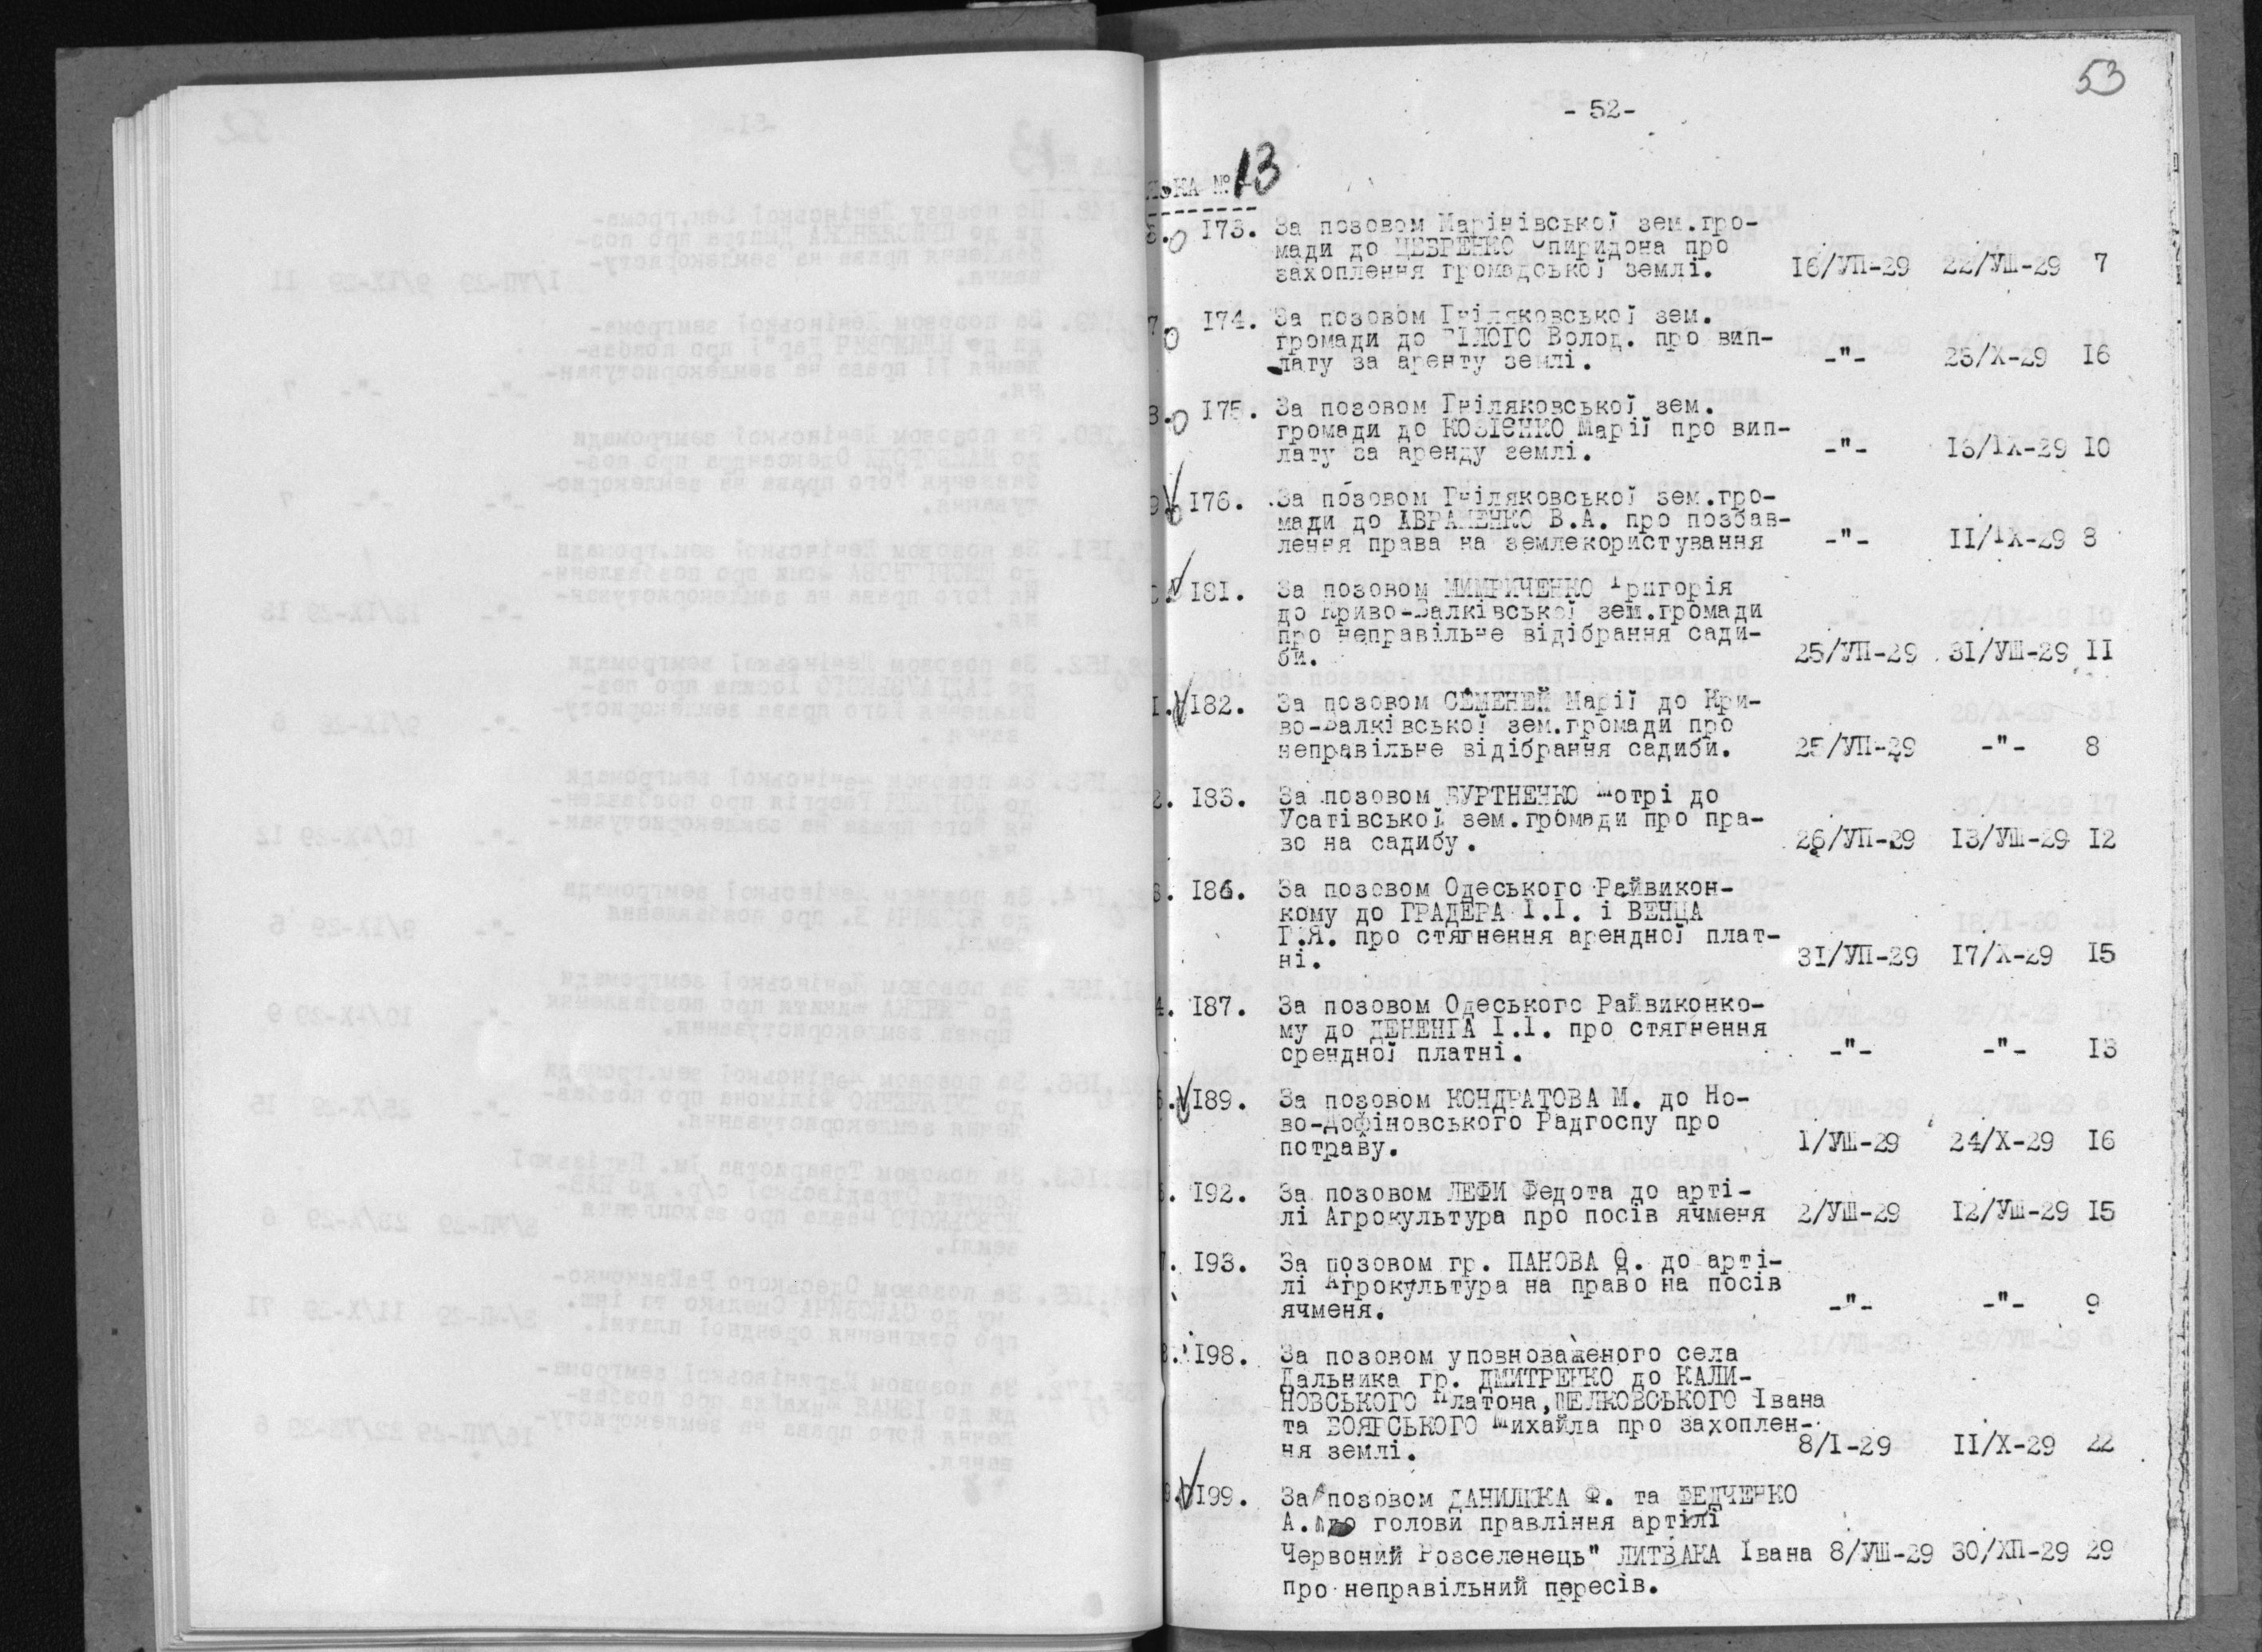 53
- 52-
№ 13
173. За позовом Марінівської зем.гро-
мади до ЦЕБРЕНКО Спиридона про
захоплення громадської землі. 16/УП-29 22/УШ-29 7
174. За позовом Гніляковської зем.
громади до БІЛОГО Волод. про вип-
лату за аренту землі. -"- 23/Х-29 16
175. За позовом Гніляковської зем.
громади до КОЗІЄНКО Марії про вип-
лату за аренду землі. -"- 13/ІХ-29 10
176. За позовом Гніляковської зем.гро-
мади до АВРАМЕНКО В.А. про позбав-
лення права на землекористування -"- II/ІХ-29 8
181. За позовом МИМРИЧЕНКО Григорія
до Криво-Балківської зем.громади
про неправільне відібрання сади-
би. 25/УП-29 31/УШ-29 II
182. За позовом СЕМЕНЕЙ Марії до Кри-
во-Балківської зем.громади про
неправільне відібрання садиби. 25/УП-29 -"- 8
183. За позовом БУРТНЕНКО Мотрі до
Усатівської зем.громади про пра-
во на садибу. 26/УП-29 13/УШ-29 12
186. За позовом Одеського Райвикон-
кому до ГРАДЕРА І.І. і ВЕНЦА
Г.Я. про стягнення арендної плат-
ні. 31/УП-29 17/Х-29 15
187. За позовом Одеського Райвиконко-
му до ДЕНЕНГА І.І. про стягнення
орендної платні. -"- -"- 13
189. За позовом КОНДРАТОВА М. до Но-
во-Дофіновського Радгоспу про
потраву. 1/УШ-29 24/Х-29 16
192. За позовом ЛЕФИ Федота до арті-
лі Агрокультура про посів ячменя 2/УШ-29 12/УШ-29 15
193. За позовом гр. ПАНОВА О. до арті-
лі Агрокультура на право на посів
ячменя. -"- -"- 9
198. За позовом уповноваженого села
Дальника гр. ДМИТРЕНКО до КАЛИ-
НОВСЬКОГО Платона, ШЕЛКОВСЬКОГО Івана
та БОЯРСЬКОГО Михайла про захоплен-
ня землі. 8/І-29 II/Х-29 22
199. За позовом ДАНИЛЮКА Ф. та ФЕДЧЕНКО
А. до голови правління артілі
Червоний Розселенець" ЛИТВАКА Івана 8/УШ-29 30/ХП-29 29
про неправільний пересів.